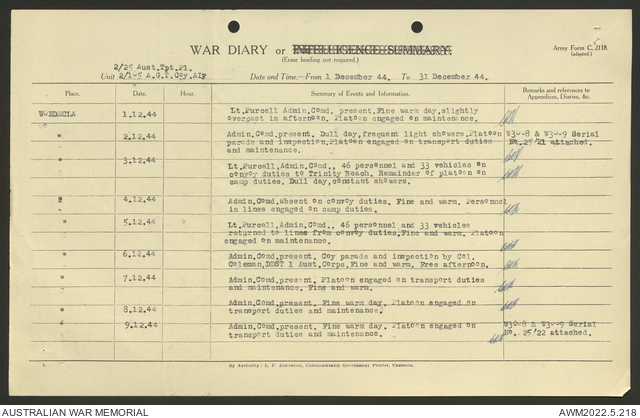 WAR DIARY or INTELLIGENCE SUMMARY.
(Erase heading not required.)
Army Form C. 2118.
(adapted.)
2/25 Aust.Tpt.Pl.
Unit 2/1 A.G.T.Coy.AIF
Date and Time.—From 1 December 44. To 31 December 44.
Place. Date. Hour. Summary of Events and Information. Remarks and references to Appendices, Diaries, &c.
WONDECLA 1.12.44 Lt.Purcell Admin.Comd. present. Fine warm day, slightly
overcast in afternoon. Platoon engaged on maintenance.
" 2.12.44 Admin.Comd.present. Dull day, frequent light showers. Platoon W3008 & W3009 Serial
parade and inspection. Platoon engaged on transport duties No. 25/21 attached.
and maintenance.
" 3.12.44 Lt.Purcell, Admin.Comd., 46 personnel and 33 vehicles on
convoy duties to Trinity Beach. Remainder of platoon on
camp duties. Dull day, constant showers.
" 4.12.44 Admin.Comd.absent on convoy duties. Fine and warm. Personnel
in lines engaged on camp duties.
" 5.12.44 " Lt.Purcell, Admin.Comd., 46 personnel and 33 vehicles
returned to lines from convoy duties. Fine and warm. Platoon
engaged on maintenance.
" 6.12.44 Admin.Comd.present. Coy parade and inspection by Col.
Coleman, DDST 1 Aust.Corps. Fine and warm. Free afternoon.
" 7.12.44 Admin.Comd.present. Platoon engaged on transport duties
and maintenance. Fine and warm.
" 8.12.44 Admin.Comd.present. Fine warm day. Platoon engaged on
transport duties and maintenance.
" 9.12.44 Admin.Comd.present. Fine warm day. Platoon engaged on W3008 & W3009 Serial
transport duties and maintenance. No. 25/22 attached.
By Authority: L. F. Johnston, Commonwealth Government Printer, Canberra.
AUSTRALIAN WAR MEMORIAL AWM2022.5.218